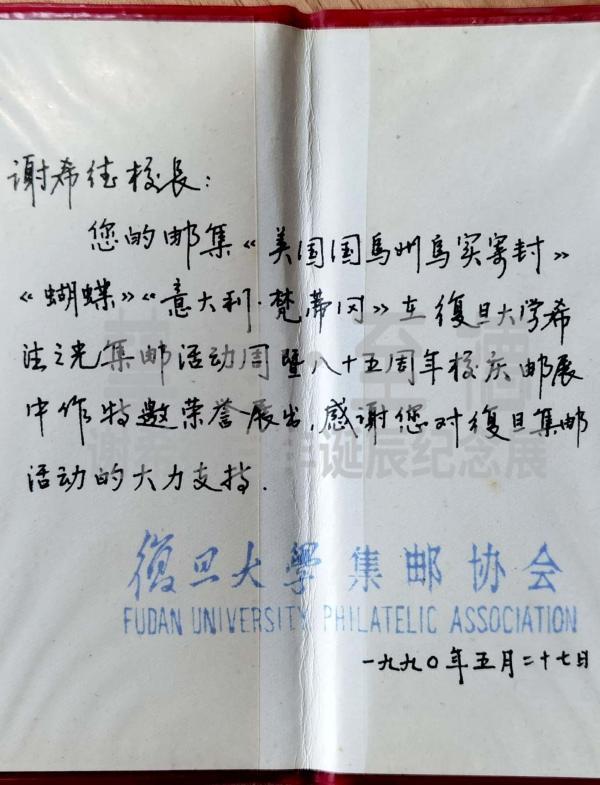 谢希德校长:
您的邮集《美国国鸟州鸟实寄封》
《蝴蝶》《意大利·梵蒂冈》在復旦大学希
法之光集邮活动周暨八十五周年校庆邮展
中作特邀荣誉展出,感谢您对復旦集邮
活动的大力支持.
復旦大學集邮协会
FUDAN UNIVERSITY PHILATELIC ASSOCIATION
一九九〇年五月二十七日
诞辰纪念展